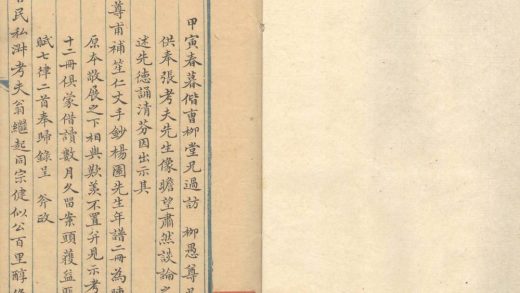 甲寅春暮偕曹柳堂兄過訪 柳愚尊
供奉張考夫先生像瞻望肅然談論之
述先德誦清芬因出示其
尊甫補笙仁丈手鈔楊園先生年譜二冊為陳
原本敬展之下相與歎羨不置并見示考
十二冊俱蒙借讀數月久留案頭獲益
賦七律二首奉歸錄呈 斧政
民私淑考夫翁繼起同宗健似公百里醇